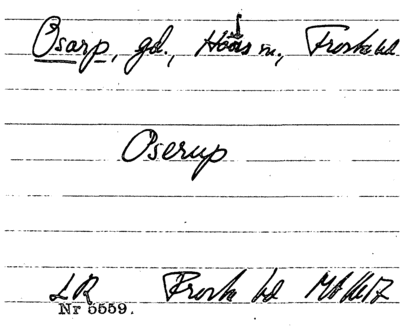 Osarp, gd., Höös sn., Frosta hd
Oserup
LR Frosta hd
Nr 5559.